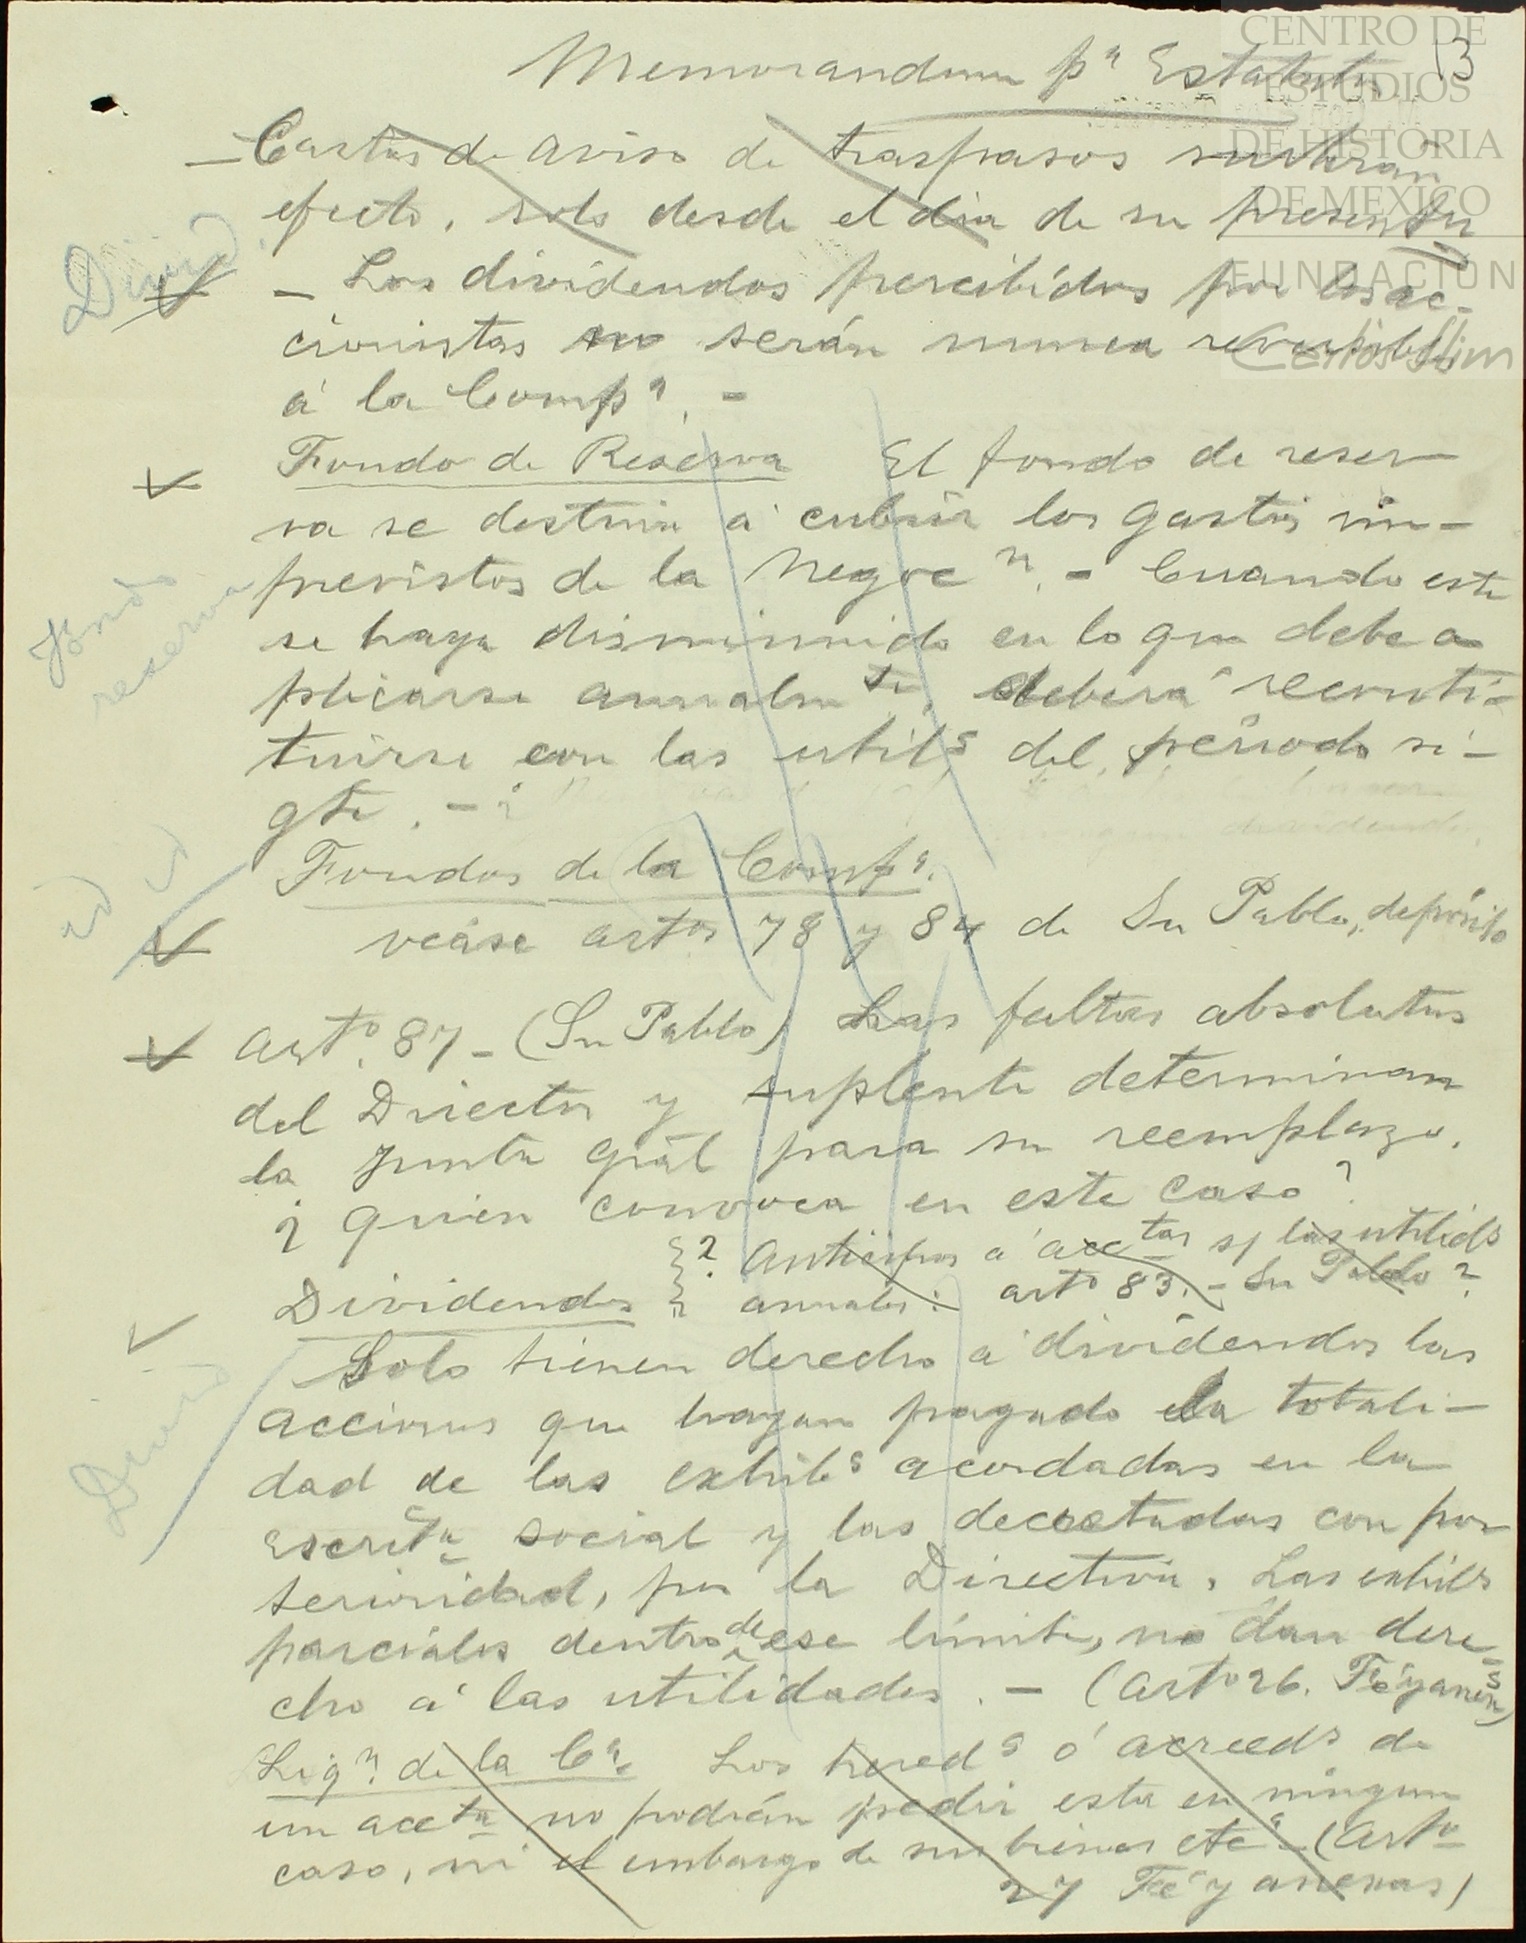 Memorandum pª Estatutos
13
CENTRO DE
ESTUDIOS
DE HISTORIA
DE MEXICO
FUNDACIÓN
Carlos Slim
— Cartas de aviso de traspasos surtirán
efecto, solo desde el dia de su presentn
Divid.
— Los dividendos percibidos por los ac-
cionistas no serán nunca reversibles
á la Compª. -
Fondo de Reserva El fondo de reser-
va se destina á cubrir los gastos im-
previstos de la Negocn. - Cuando este
Fondo
reserva
se haya disminuido en lo que debe a
plicarse anualmte, deberá reconsti-
tuirse con las utils del periodo si-
gte. -
Fondos de la Compª.
id id
veáse artos 78 y 84 de Sn Pablo, depósito
Arto. 87 - (Sn Pablo) Las faltas absolutas
del Director y suplente determinan
la Junta Gral para su reemplazo.
¿Quien convoca en este caso?
Dividendos ? Anticipos á acctas s/ las utilids
anuales: arto 83. - Sn Pablo?
Solo tienen derecho á dividendos las
acciones que hayan pagado la totali-
Divid
dad de las exhibs acordadas en la
escritª social y las decretadas con pos
terioridad, por la Directiva. Las exhibs
parciales dentro de ese límite, no dan dere-
cho á las utilidades. - (Arto 26. Fé y anexas)
Liqn. de la Cª. Los hereds ó acreeds de
un accta no podrán pedir esta en ningun
caso, ni el embargo de sus bienes etcª - (Arto
27 Fé y anexas)